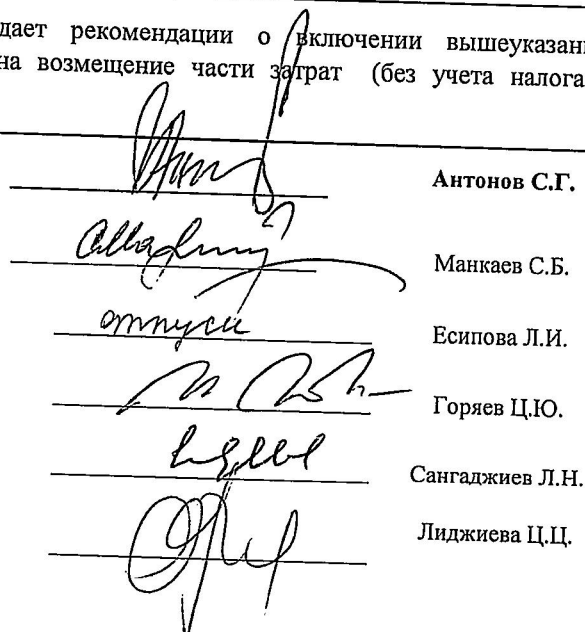 дает рекомендации о включении вышеуказан
на возмещение части затрат (без учета налога
Антонов С.Г.
Манкаев С.Б.
отпуск Есипова Л.И.
Горяев Ц.Ю.
Сангаджиев Л.Н.
Лиджиева Ц.Ц.